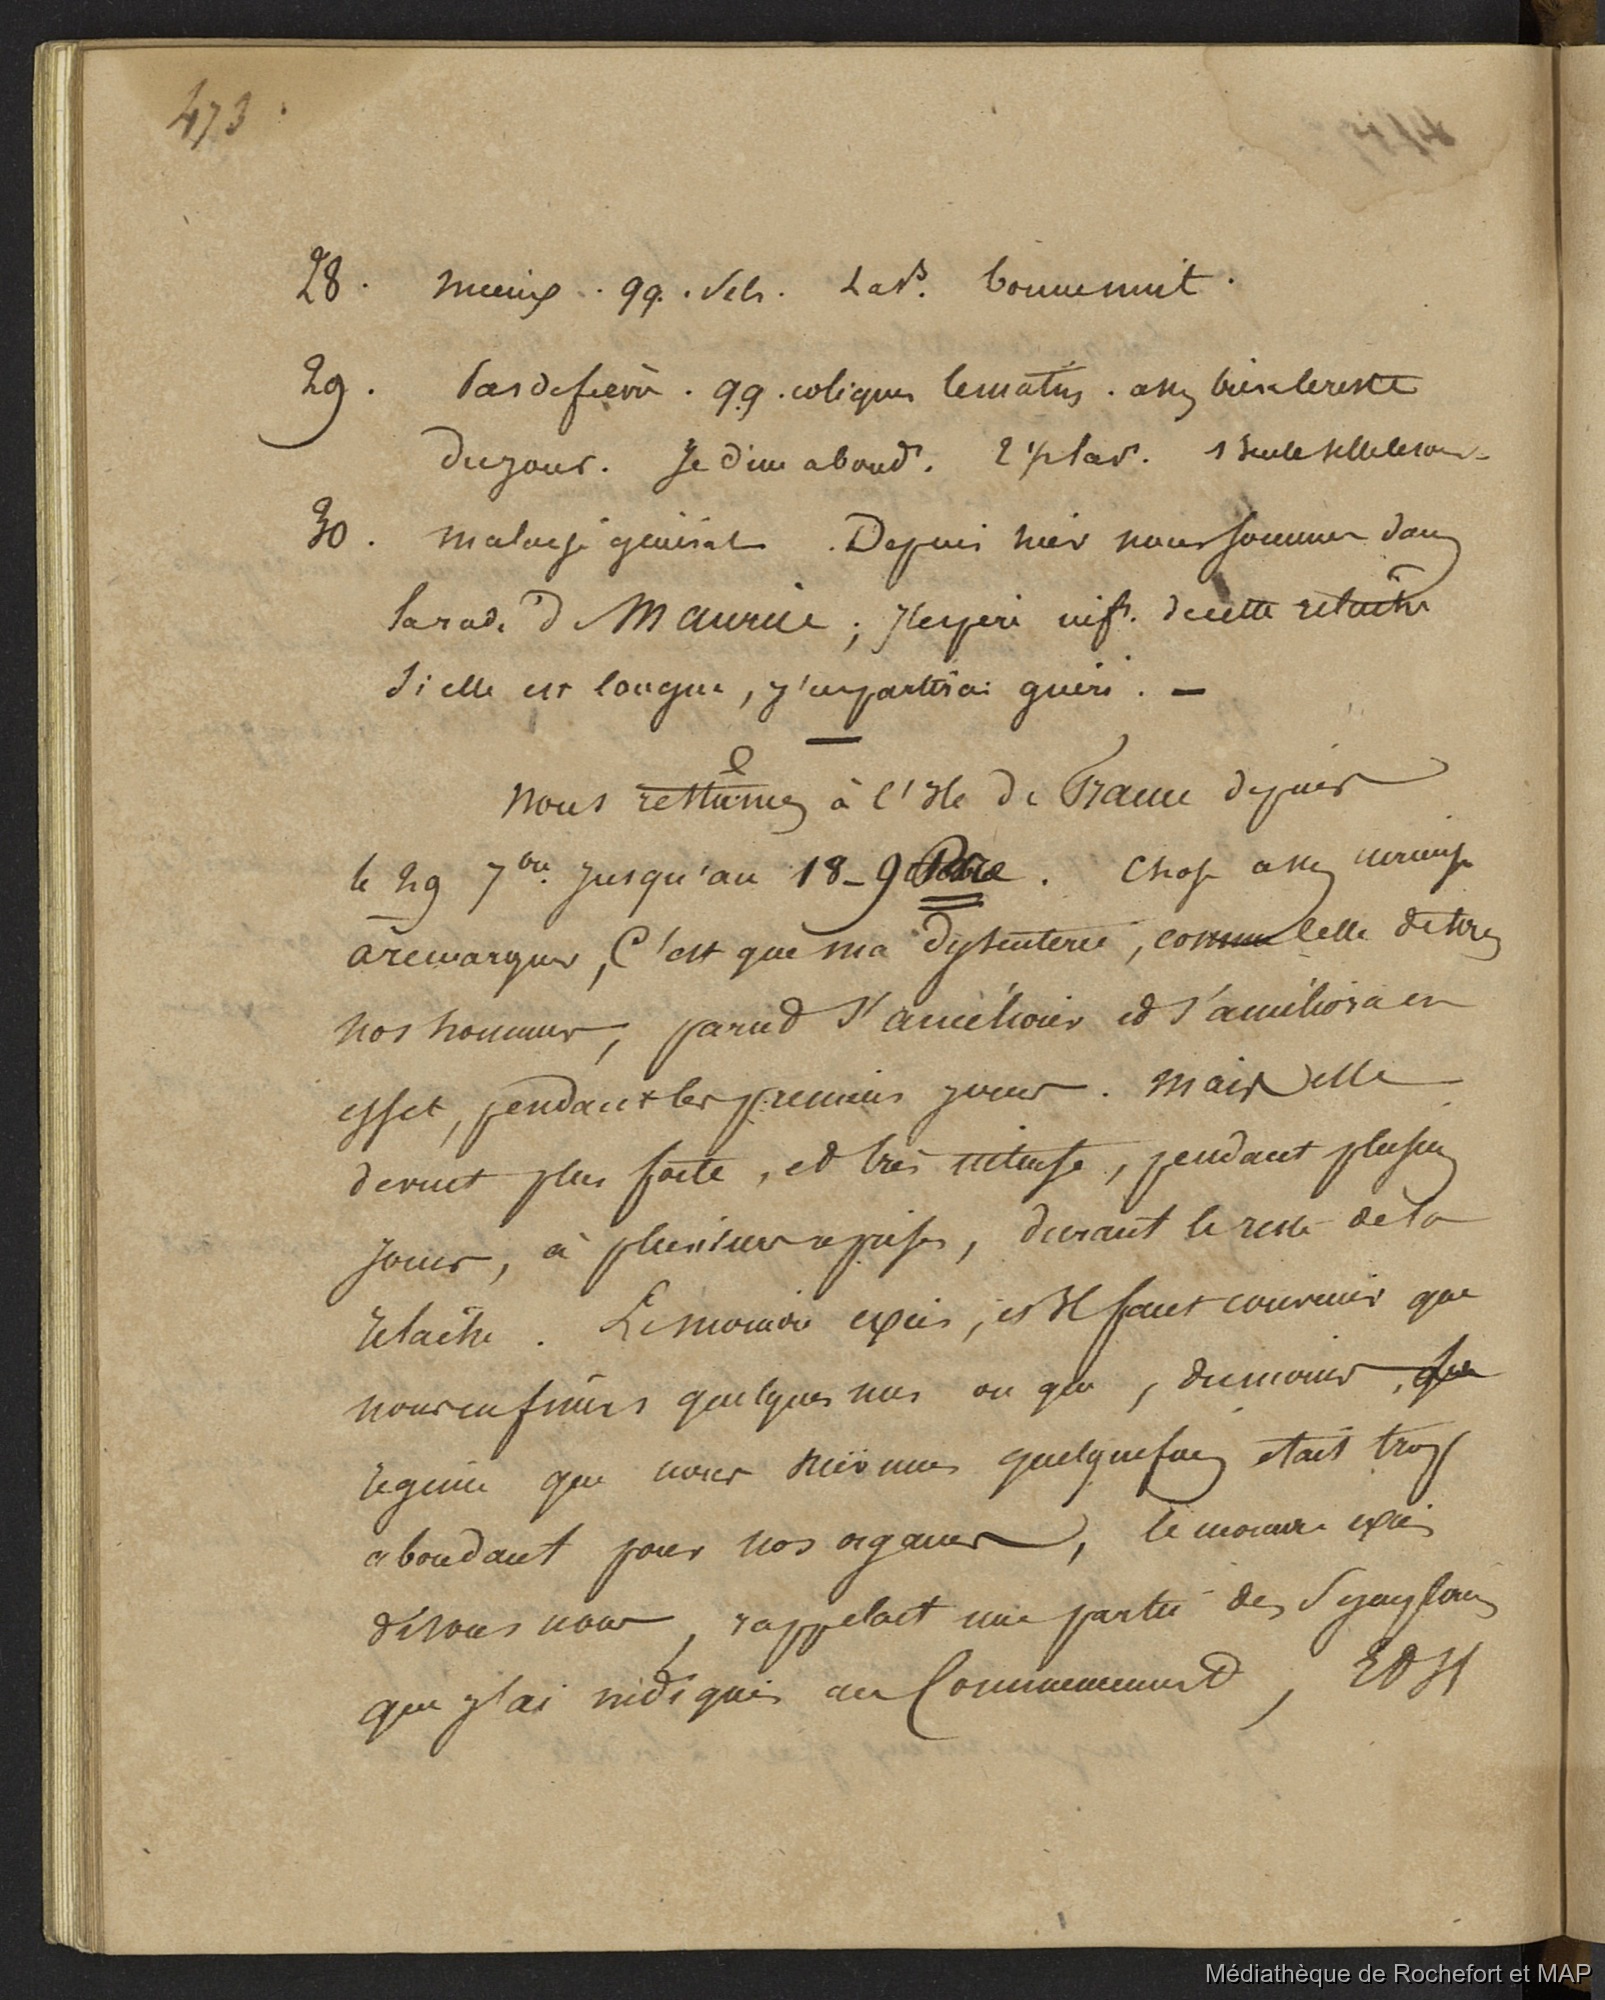 473.
28. mieux. qq. sels. Lavts. bonne nuit.
29. Pas de fievre. qq. coliques le matin. assez bien le reste
du jour. Je dine abondt. 2 1/2 lavt. 1 seule selle le soir
30. malaise général. Depuis hier nous sommes dans
la rade de Maurice ; J'espere de cette relâche
Si elle est longue, j'en partirai guéri. —
nous restames à l'Ile de France depuis
le 29 7bre jusqu'au 18 - 9bre. Chose assez curieuse
à remarquer, C'est que ma dyssenterie, comme celle de tous
nos hommes, parut s'améliorer et s'améliora en
effet, pendant les premiers jours. mais elle
devint plus forte, et très intense, pendant plusieurs
jours, à plusieurs reprises, durant le reste de la
relâche. Le moindre excès, et Il faut convenir que
nous en fimes quelques uns ou que, du moins, le
regime que nous suivimes quelquefois etait trop
abondant pour nos organes, le moindre excès
disons nous, rappelait une partie des Symptomes
que j'ai indiqués au Commencement, Et Il
Médiathèque de Rochefort et MAP